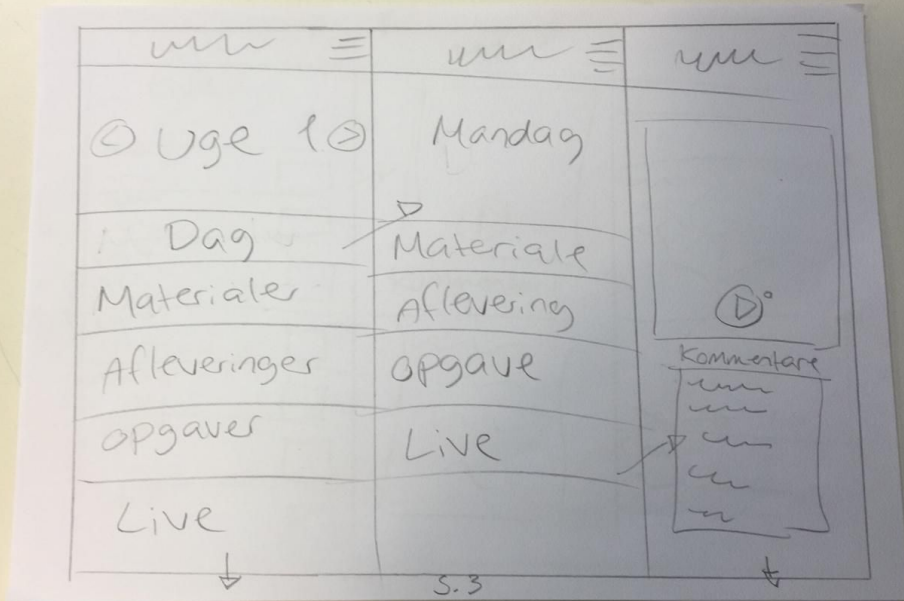 Uge 1
Dag
Materialer
Afleveringer
opgaver
Live
Mandag
Materiale
Aflevering
opgave
Live
Kommentare
S.3